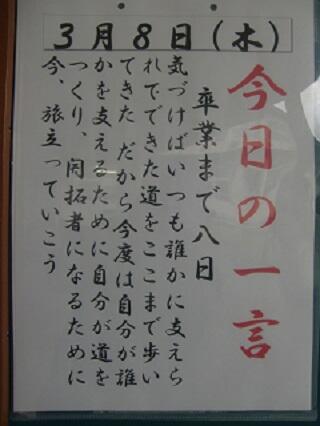 3月8日(木)
今日の一言
卒業まで八日
気づけばいつも誰かに支えら
れてできた道をここまで歩い
てきた だから今度は自分が誰
かを支えるために自分が道を
つくり、開拓者になるために
今、旅立っていこう